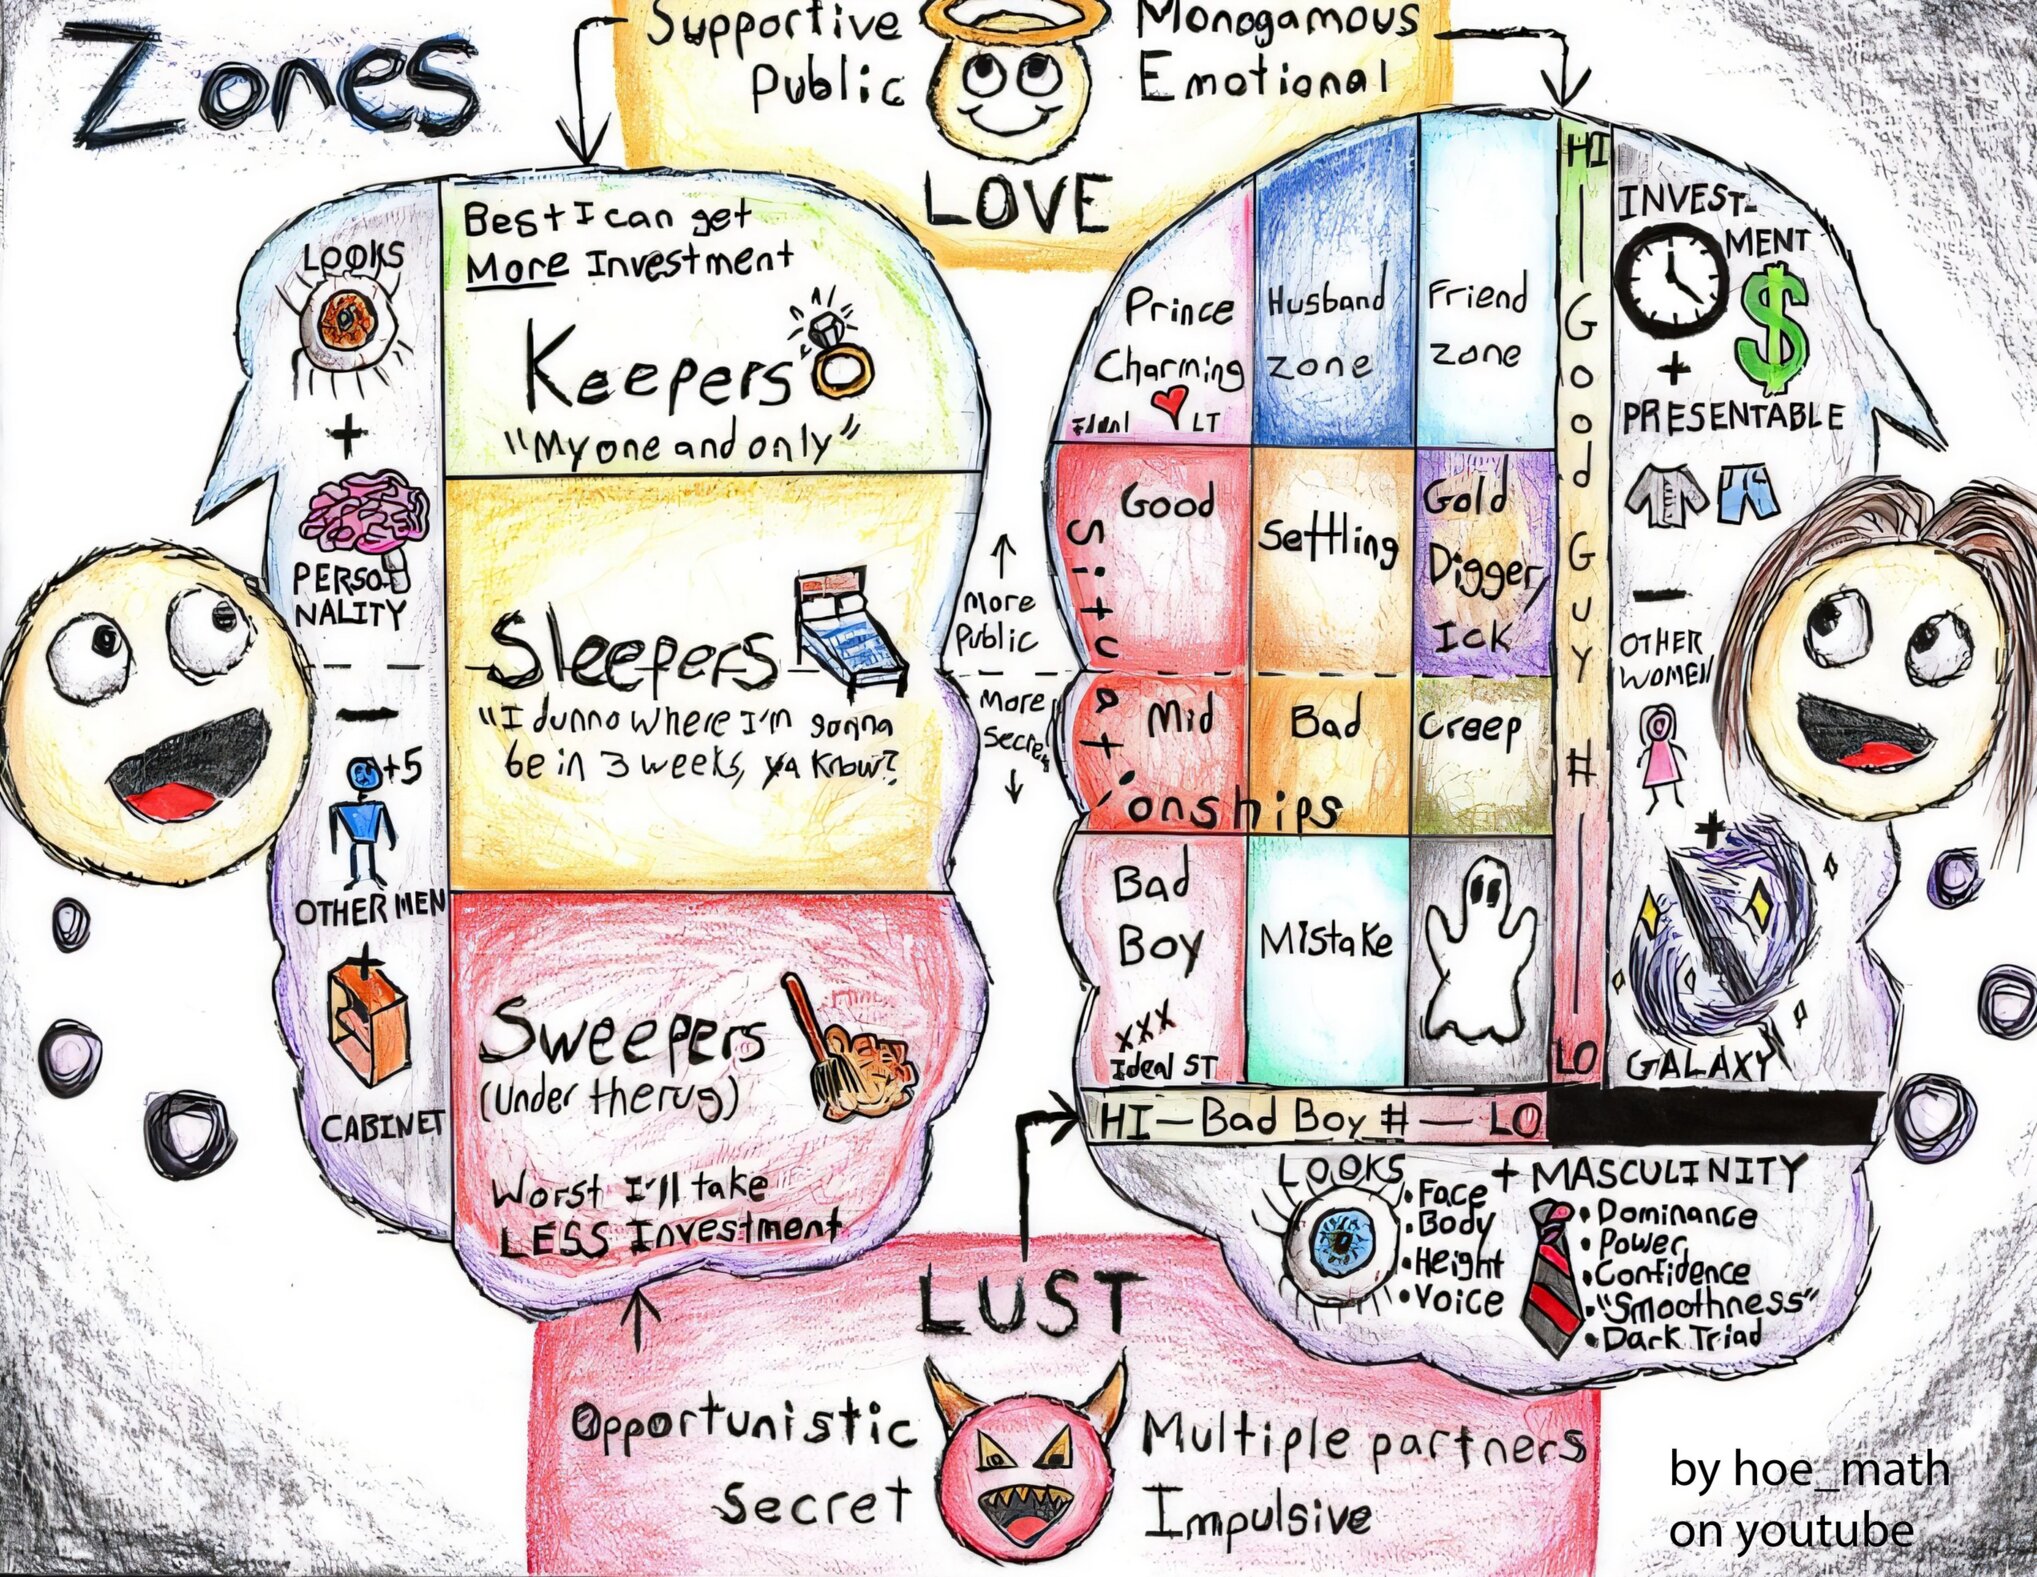 Zones
Supportive
Public
Monogamous
Emotional
LOVE
LOOKS
+
PERSO-
NALITY
-
+5
OTHER MEN
+
CABINET
Best I can get
More Investment
Keepers
"My one and only"
Sleepers
"I dunno where I'm gonna
be in 3 weeks, ya know?
Sweepers
(Under the rug)
Worst I'll take
LESS Investment
More
Public
More
Secret
Prince
Charming
Ideal LT
Husband
zone
Friend
zone
Good
Settling
Gold
Digger,
Ick
Mid
Bad
Creep
Situationships
Bad
Boy
xxx
Ideal ST
Mistake
HI
Good Guy #
LO
HI - Bad Boy # - LO
INVEST-
MENT
$
+
PRESENTABLE
-
OTHER
WOMEN
+
GALAXY
LOOKS
• Face
• Body
• Height
• Voice
+ MASCULINITY
• Dominance
• Power
• Confidence
• "Smoothness"
• Dark Triad
LUST
Opportunistic
Secret
Multiple partners
Impulsive
by hoe_math
on youtube